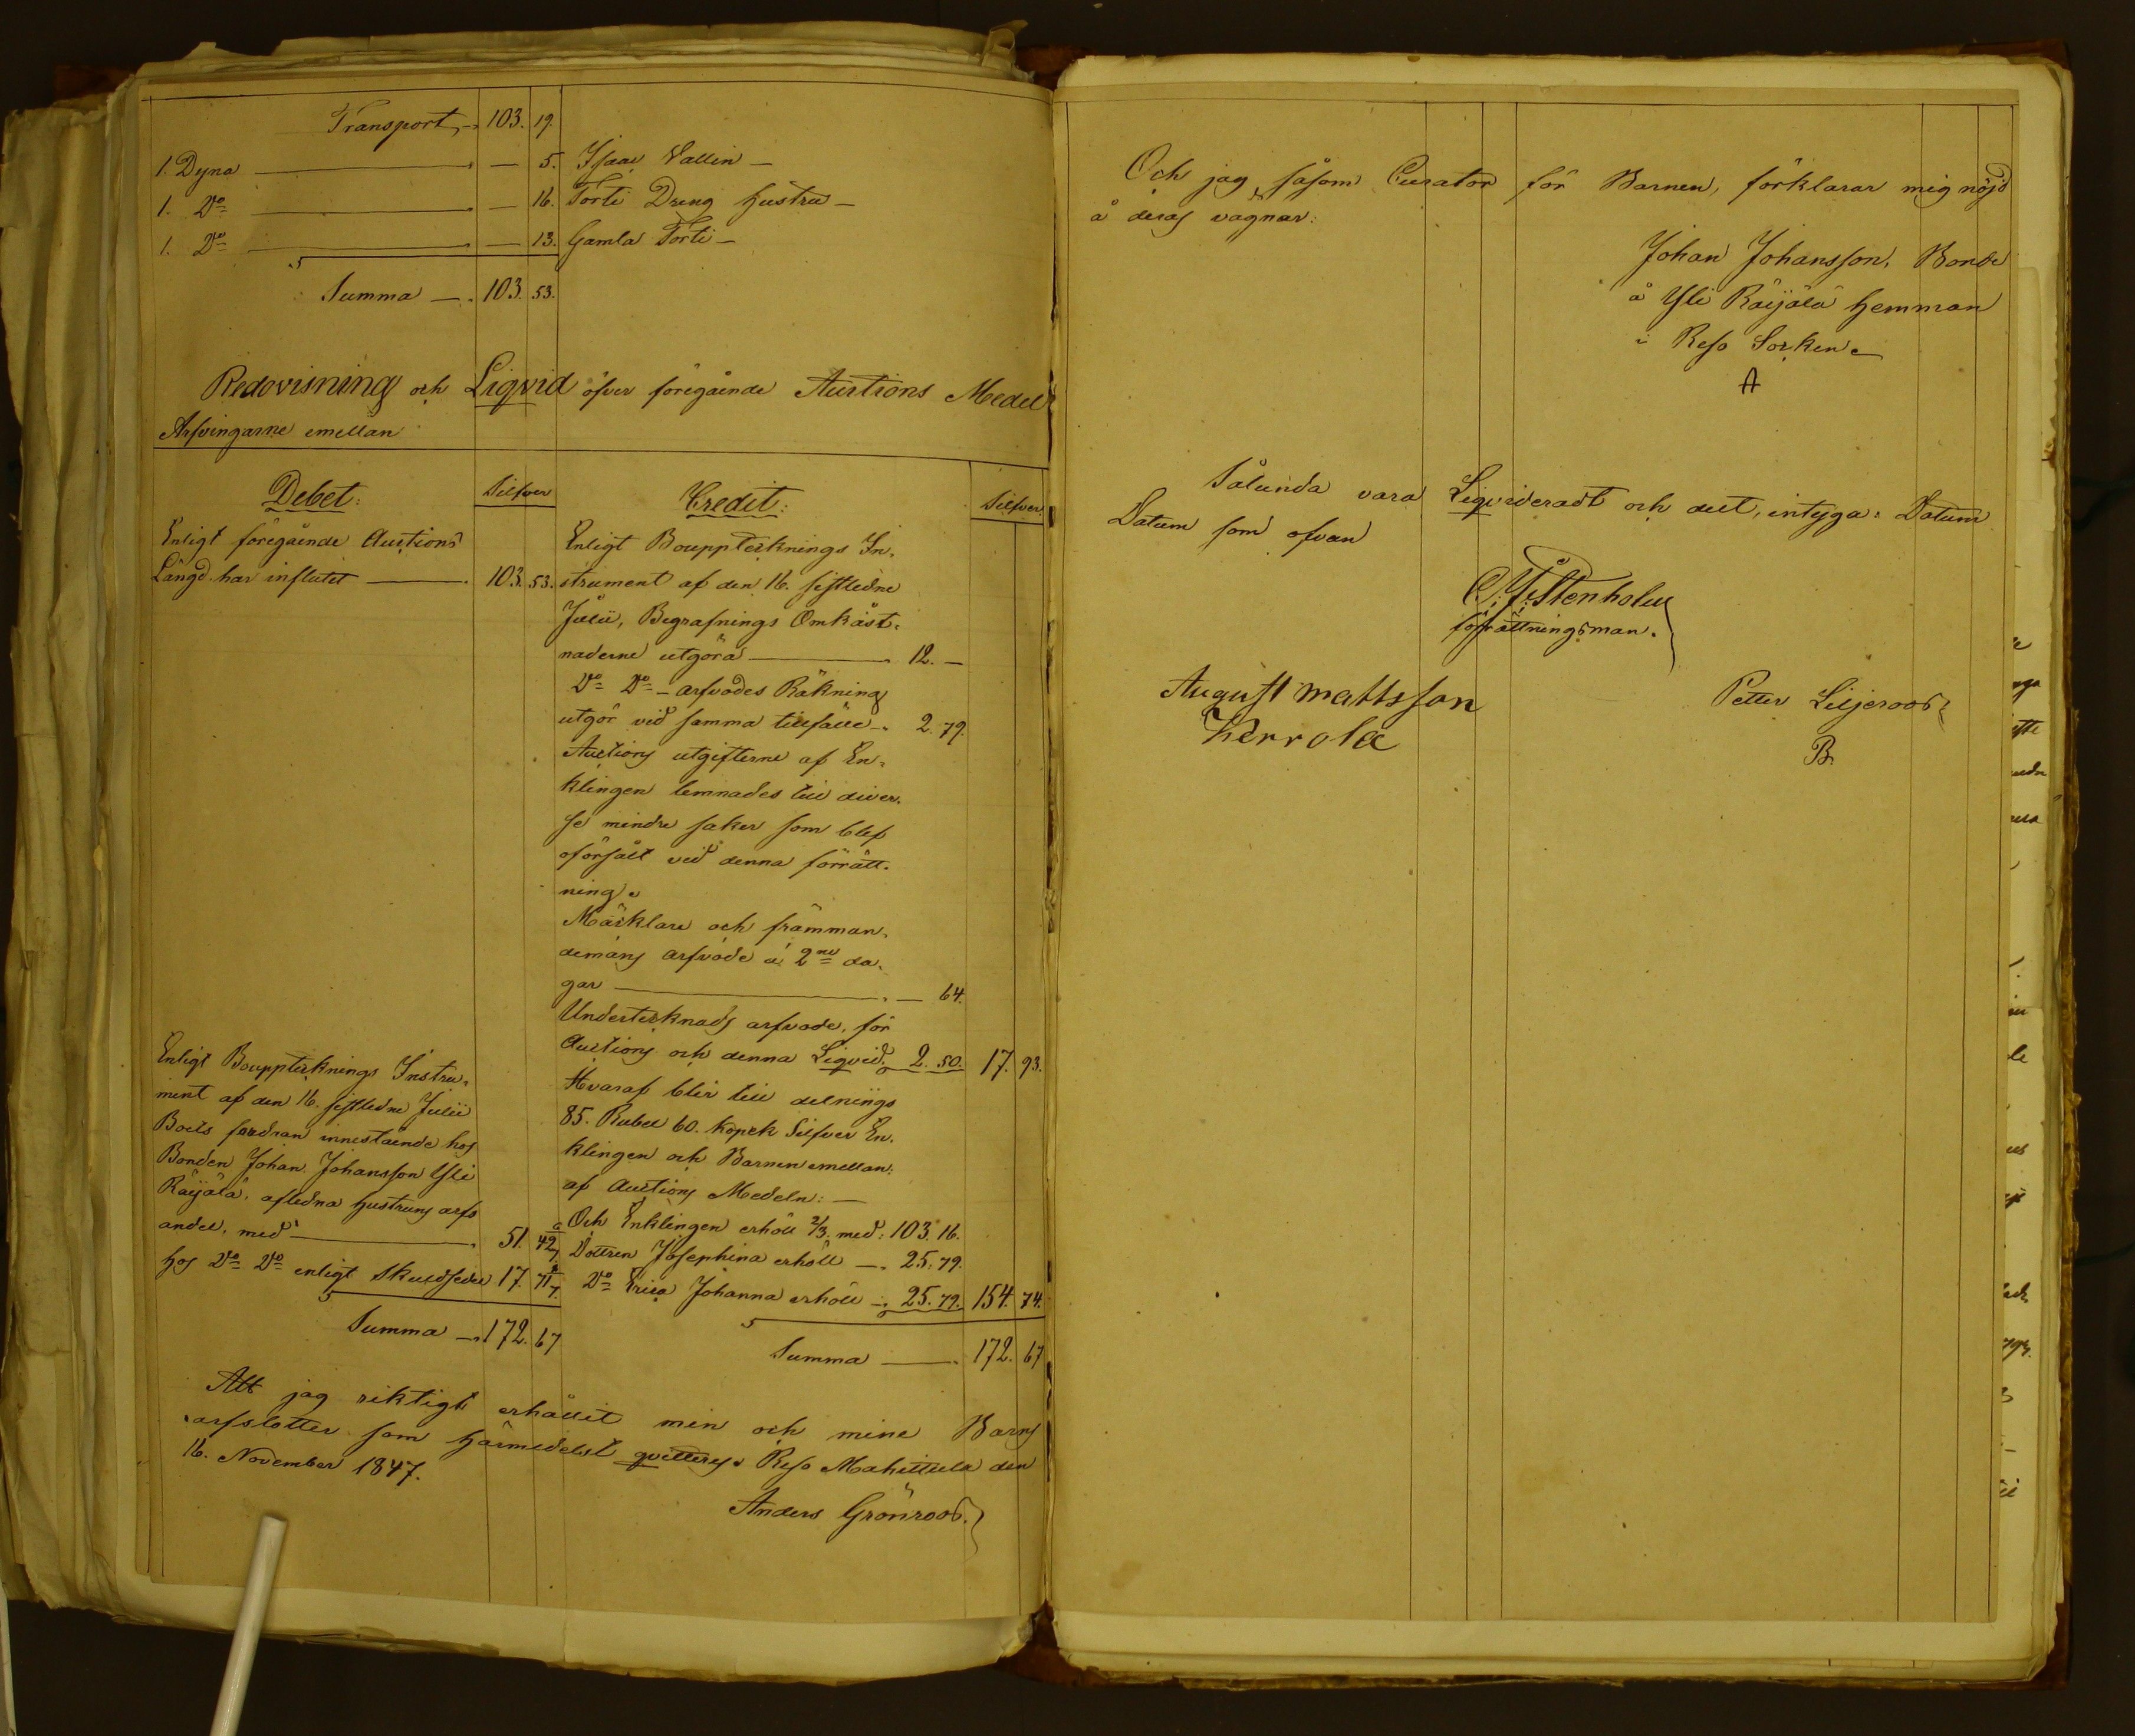 Transport, 103. 19.
1. Dyna — — 5. Isaac Vallin —
1. Do — — 16. Torti Dreng hustru —
1. Do — — 13. Gamla Torti —
Summa — 103. 53.
Redovisning och Liqvid öfver föregående Auctions Medel
Arfvingarne emellan
Debet: Silfver Credit: Silfver
Enligt föregående Auctions
Längd har influtet — 103. 53.
Enligt Bouppteknings In-
strument af den 16. sistledne
Julii, Begrafnings Omkåst-
naderne utgöra — 12. —
Do Do — arfvodes Räkning
utgör vid samma tillfälle — 2. 79.
Auctions utgifterne af En-
klingen lemnades till diver-
se mindre saker som blef
oförsålt vid denna förrätt-
ning.
Mäcklare och främman-
demäns arfvode á 2ne da-
gar — — 64.
Undertecknads arfvode, för
Auctions och denna Liqvid, 2. 50. 17. 93.
Hvaraf blir till delnings
85. Rubel 60. kopek Silfver En-
klingen och Barnen emellan:
af Auctions Medeln: —
Enligt Bouppteknings Instru-
ment af den 16. sistledne Julii
Boets fordran innestående hos
Bonden Johan Johansson Yli
Räijälä, afledna hustruns arfs
andel, med — 51. 42 6/7
hos Do Do enligt Skuldsedel 17. 71 1/7.
Summa — 172. 67
Och Enklingen erhöll 2/3. med: 103. 16.
Dottren Josephina erhöll — 25. 79.
Do Erica Johanna erhöll — 25. 79. 154. 74.
Summa — 172. 67
Att jag riktigt erhållit min och mine Barns
arfslotter som härmedelst qvitteras. Reso Mahittula den
16. November 1847.
Anders Grönroos.
Och jag, såsom Curator för Barnen, förklarar mig nöjd
å deras vägnar:
Johan Johansson, Bonde
å Yli Räijälä hemman
i Reso Socken
A
Sålunda vara Liqvideradt och delt, intyga: Datum
Datum som ofvan
Stenholm
förrättningsman.
August Mattsson
Kerrola
Petter Liljeroos
B.